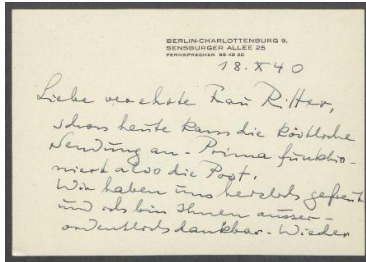 BERLIN-CHARLOTTENBURG 9,
SENSBURGER ALLEE 25
FERNSPRECHER 99 49 25
18.X 40
Liebe verehrte Frau Ritter,
schon heute kam die köstliche
Sendung an. Prima funktio-
niert also die Post.
Wir haben uns herzlich gefreut
und ich bin Ihnen ausser-
ordentlich dankbar. Wieder